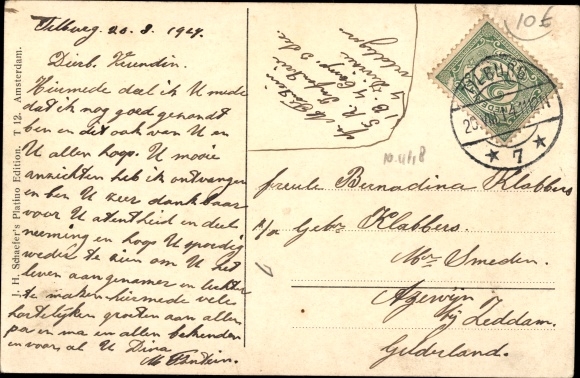 Tilburg 20.8.1914.
Dierb. Vriendin.
Hiermede deel ik U mede
dat ik nog goed gezond
ben en dit ook van U en
U allen hoop. U mooie
anzichten heb ik ontvangen
en ben U zeer dankbaar
voor U atentheid en deel
neeming en hoop U spoedig
weder te zien om U het
leven aangenamer en lichter
te maken hiermede vele
hartelijken groeten aan allen
pa en ma en allen bekenden
en voor al U Dina
J. H. Schaefer's Platino Edition. T 12. Amsterdam.
5. R.
1 B. 4 Comp. 3 de
4 Divisie
TILBURG
7
10 E
freule Bernadina Klabbers
p/a Gebr Klabbers.
Mr Smeden.
Azewijn
bij Zeddam.
Gelderland.